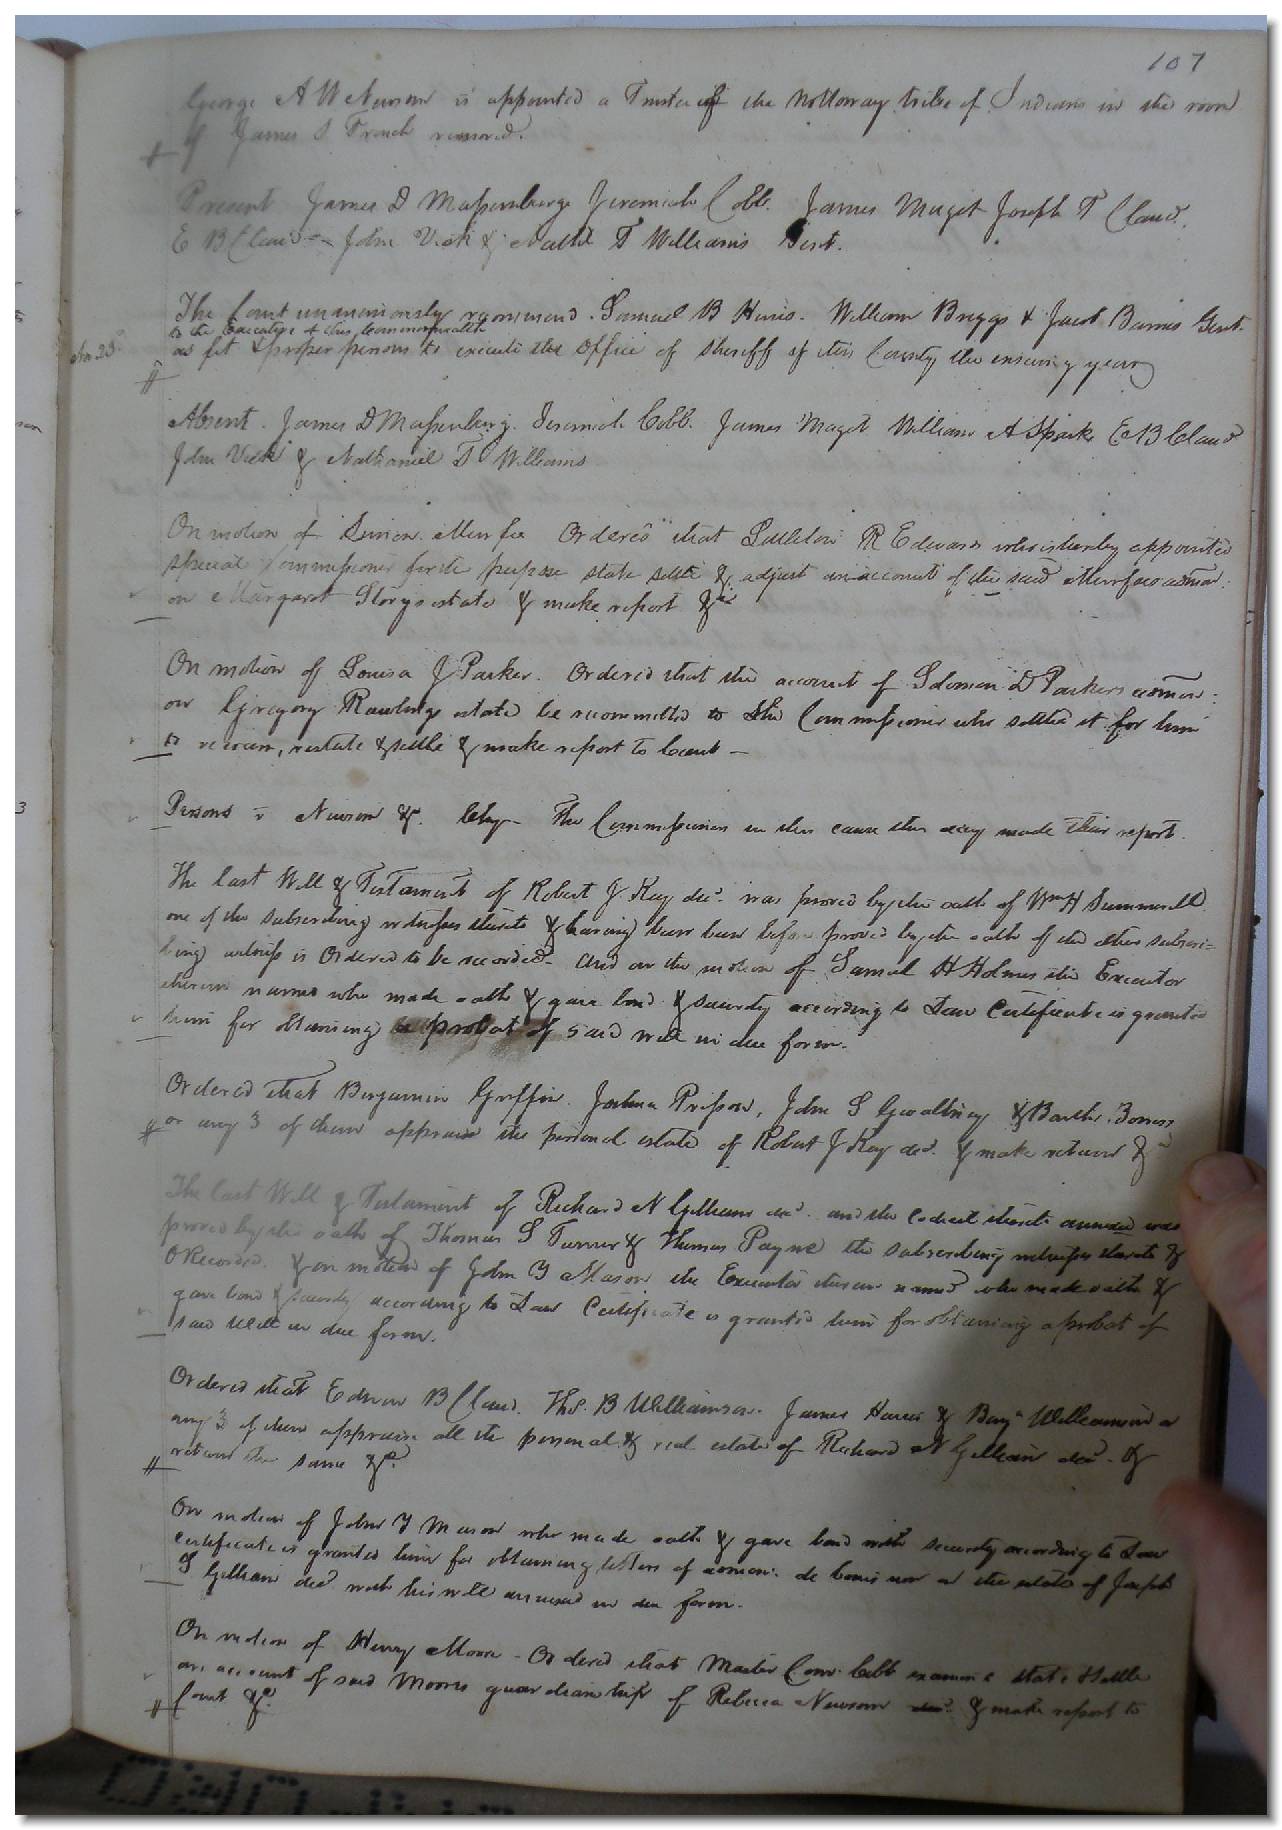 107
George A W Newsom is appointed a Trustee of the Nottoway tribe of Indians in the room
of James S French removed.
Present James D Massenburg Jeremiah Cobb. James Maget Joseph T Claud.
E B Claud John Vick & Nathl T Williams Gent.
The Court unanimously recommend Samuel B Hines. William Briggs & Jacob Barnes Gent.
to the Executive of this Commonwealth
as fit & proper persons to execute the Office of Sheriff of this County the ensuing year
Absent. James D Massenburg. Jeremiah Cobb. James Maget William A Spark E B Claud
John Vick & Nathaniel T Williams
On motion of Simon Murfee Ordered that Littleton R Edwards who is hereby appointed
special Commissioner for the purpose state settle & adjust an account of the said Murfees admon:
on Margaret Storys estate & make report &c
On motion of Louisa J Parker. Ordered that the account of Solomon D Parkers admon:
on Gregory Rawlings estate be recommitted to the Commissioner who settled it for him
to review, restate & settle & make report to Court —
Persons v Newsom &c. Chy— The Commissioners in this cause this day made their report.
The last Will & Testament of Robert J Kay decd. was proved by the oath of Wm H Summerell
one of the subscribing witnesses thereto & having been before proved by the oath of the other subscri=
bing witness is Ordered to be recorded— and on the motion of Samuel H Holmes the Executor
therein named who made oath & gave bond & security according to Law Certificate is granted
him for obtaining a probat of said will in due form.
Ordered that Benjamin Griffin. Joshua Presson, John S Gwaltney & Barthw.
or any 3 of them appraise the personal estate of Robert J Kay decd. & make return &c
The last Will & Testament of Richard N Gilliam decd. and the codicil thereto annexed was
proved by the oath of Thomas S Turner & Thomas Payne the subscribing witnesses thereto &
O Recorded. & on motion of John Y Mason the Executor therein named who made oath &
gave bond & security according to Law Certificate is granted him for obtaining a probat of
said Will in due form.
Ordered that Edwin B Claud. Ths. B Williamson. James Harris & Benjn Williamson or
any 3 of them appraise all the personal & real estate of Richard N Gilliam decd. &
return the same &c.
On motion of John Y Mason who made oath & gave bond with security according to Law
certificate is granted him for obtaining letters of admon: de bonis non on the estate of Joseph
S Gilliam decd with his will annexed in due form.
On motion of Henry Moore— Ordered that Master Com: Cobb examine state & settle
an account of said Moores guardianship of Rebecca Newsom & make report to
Court &c.